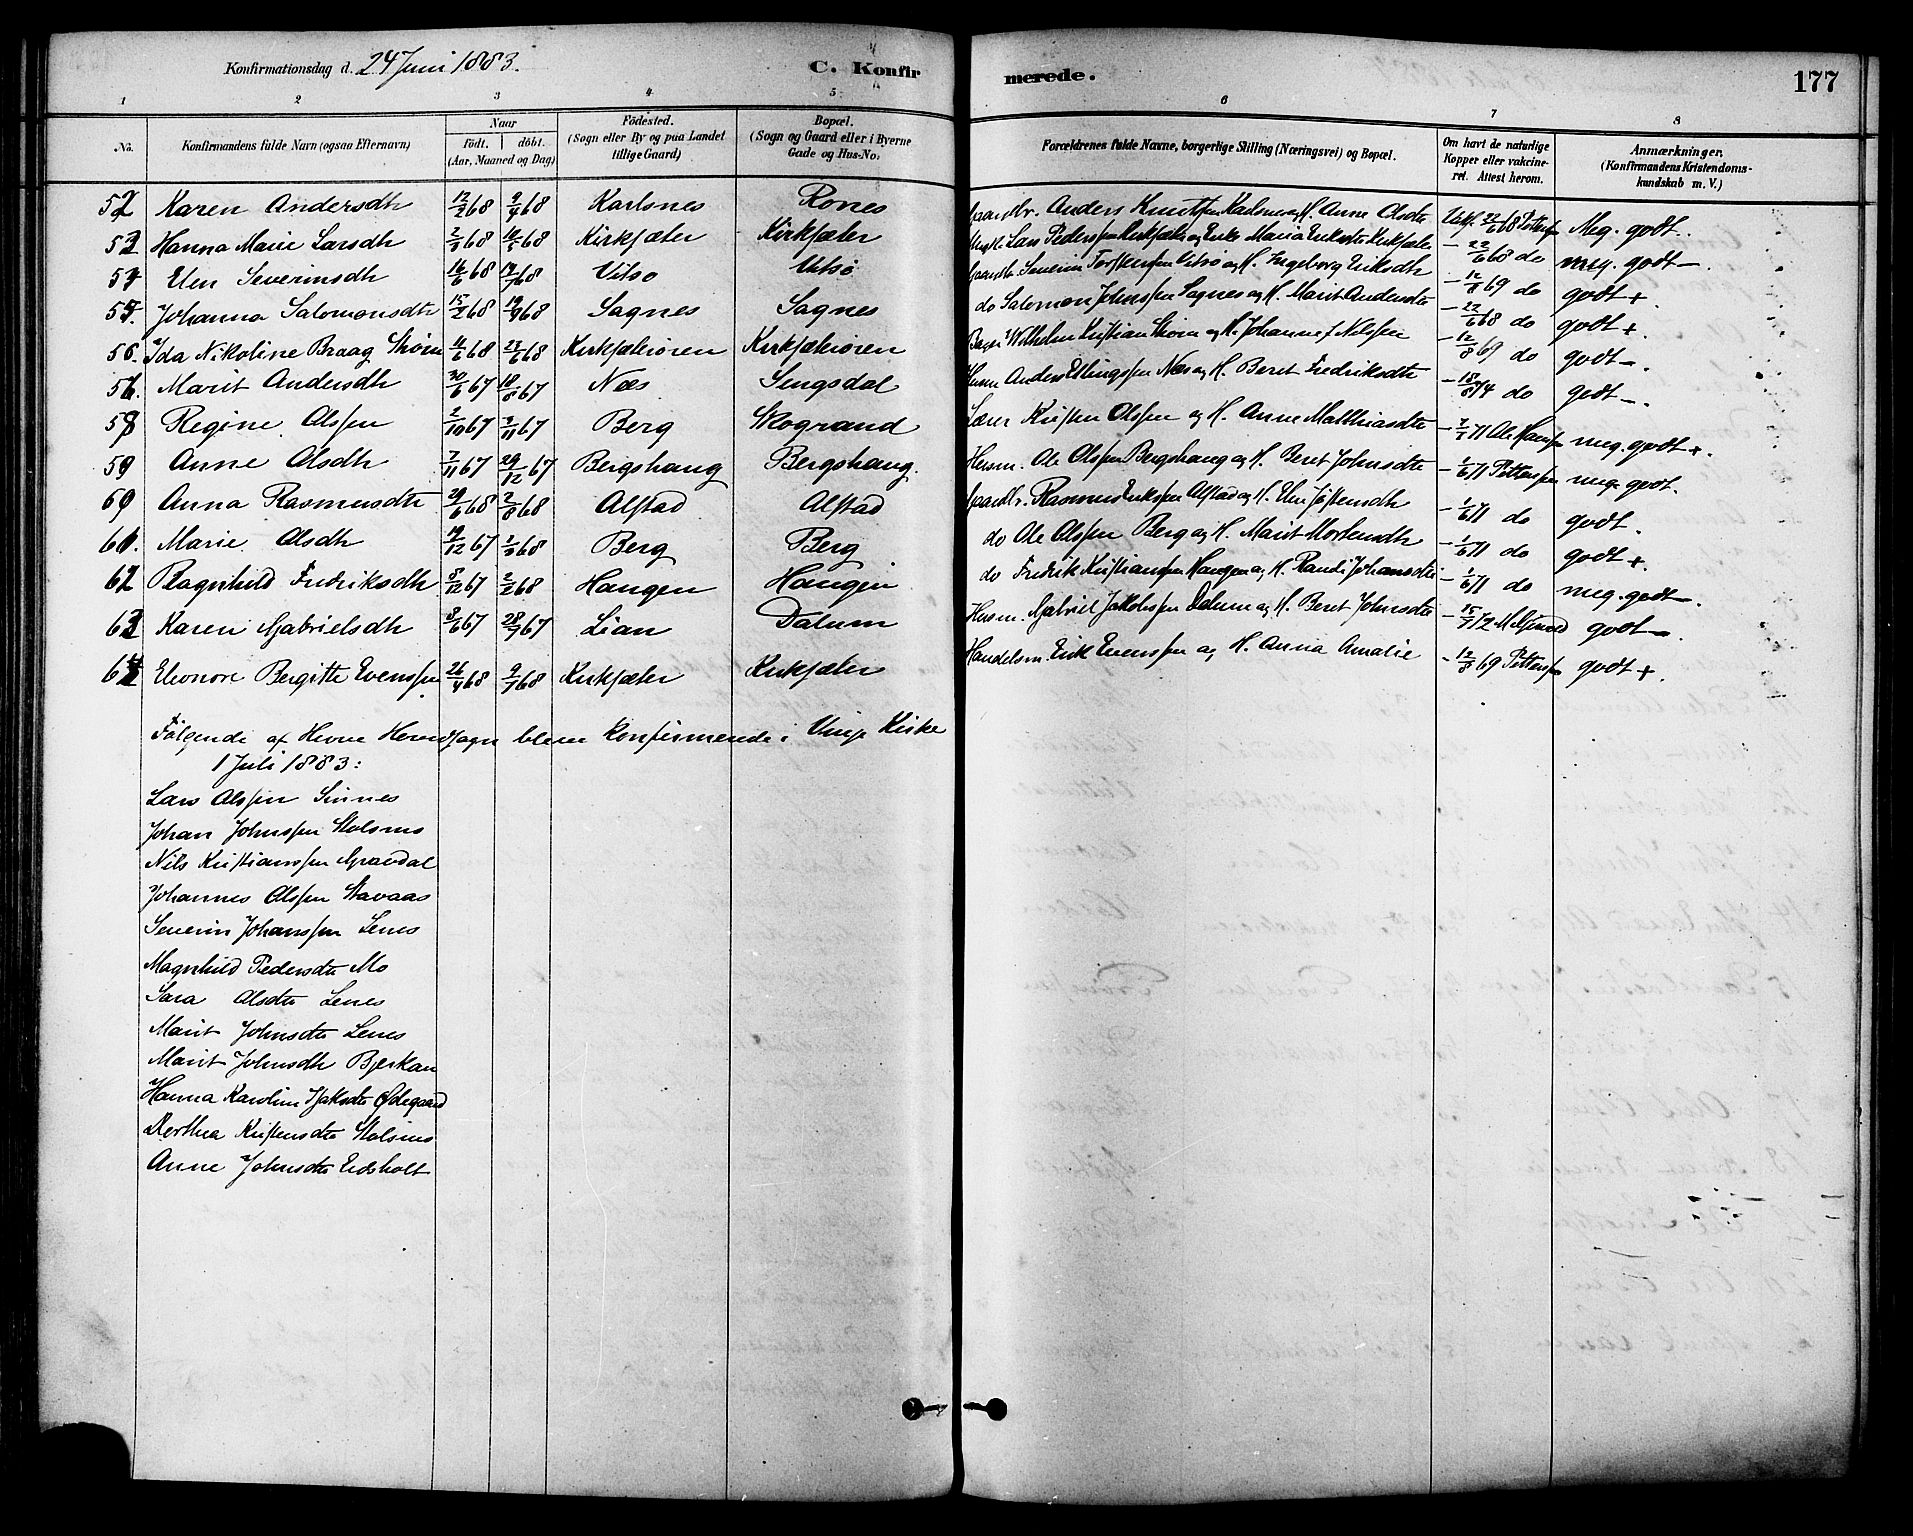 Konfirmationsdag d. 24 Juni 1883. C. Konfirmerede. 177
1 2 3 4 5 6 7 8
No. Konfirmandens fulde Navn (ogsaa Efternavn) Naar födt. döbt. (Aar, Maaned og Dag) Födested. (Sogn eller By og paa Landet tillige Gaard) Bopæl. (Sogn og Gaard eller i Byerne Gade og Hus-No. Forældrenes fulde Navne, borgerlige Stilling (Næringsvei) og Bopæl. Om havt de naturlige Kopper eller vakcineret. Attest herom. Anmærkninger. (Konfirmandens Kristendomskundskab m. V.)
52 Karen Andersdtr 12/2 68 9/4 68 Karlsnes Rones Gaardbr. Anders Knutssen Karlsnes og H. Anne Olsdtr Vakc. 22/6 68 Pettersen Meg. godt.
53 Hanna Marie Larsdtr Kirksæter Kirksæter Lars Pederssen Kirksæter og Enke Maria Eriksdtr Kirksæter - 22/6 68 do meg. godt -.
54 Elen Severinsdtr 16/6 68 Vitsø Vitsø Gaardb. Severin Torstenssen Vitsø og H. Ingeborg Eriksdtr - 12/8 69 do godt +
55. Johanna Salomonsdtr 15/2 68 19/4 68 Sagnes Sagnes do Salomon Johnssen Sagnes og H. Marit Andersdtr - 22/6 68 do godt +
56. Ida Nikoline Braag Strøm 23/6 68 Kirksæterøren Kirksæterøren Wilhelm Kristian Strøm og H. Johanne f. Nilssen - 12/8 69 do godt -.
56. Marit Andersdtr 30/6 67 18/8 67 Næs Sengsdal Husm. Anders Ellingssen Næs og H. Beret Fredriksdtr - 18/8 74 do godt -.
58 Regine Olssen 2/10 67 3/11 67 Berg Skogrand Lærer Kristen Olssen og H. Anne Matthiasdtr Ole Hanssen meg. godt +.
59 Anne Olsdtr 7/11 67 29/12 67 Bergshaug Bergshaug. Husm. Ole Olssen Bergshaug og H. Beret Johnsdtr - 1/6 71 Pettersen meg. godt.
60 Anna Rasmusdtr 29/6 68 2/8 68 Alstad Alstad Gaardbr. Rasmus Erikssen Alstad og H. Elen Jostensdtr - 1/6 71 do godt.
61. Marie Olsdtr 19/12 67 Berg Berg do Ole Olssen Berg og H. Marit Mortensdtr - 1/6 71 do godt +
62 Ragnhild Fredriksdtr 8/12 67 2/2 68 Haugen Haugen do Fredrik Kristianssen Haugen og H. Randi Johansdtr - 1/6 71 do meg. godt -.
63 Karen Gabrielsdtr 8/6 67 28/7 67 Lian Dalum Husm. Gabriel Jakobssen Dalum og H. Beret Johnsdtr godt -.
64 Eleonore Bergitte Evenssen 26/4 68 9/7 68 Kirksæter Kirksæter Handelsm. Erik Evenssen og H. Anna Amalie - 12/8 69 Pettersen godt +.
Følgende af Hevne Hovedsogn bleve konfirmerede i Vinje Kirke
1 Juli 1883:
Lars Olssen Sinnes
Johan Johnssen Stolsmo
Nils Kristianssen Grøvdal
Johannes Olssen Stavaas
Severin Johanssen Lenes
Magnhild Pedersdtr Mo
Sara Olsdtr Lenes
Marit Johnsdtr Lenes
Marit Johnsdtr Bjerkan
Hanna Karoline Isaksdtr Ødegaard
Berthea Kristensdtr Stolsmo
Anne Johnsdtr Eidsholt